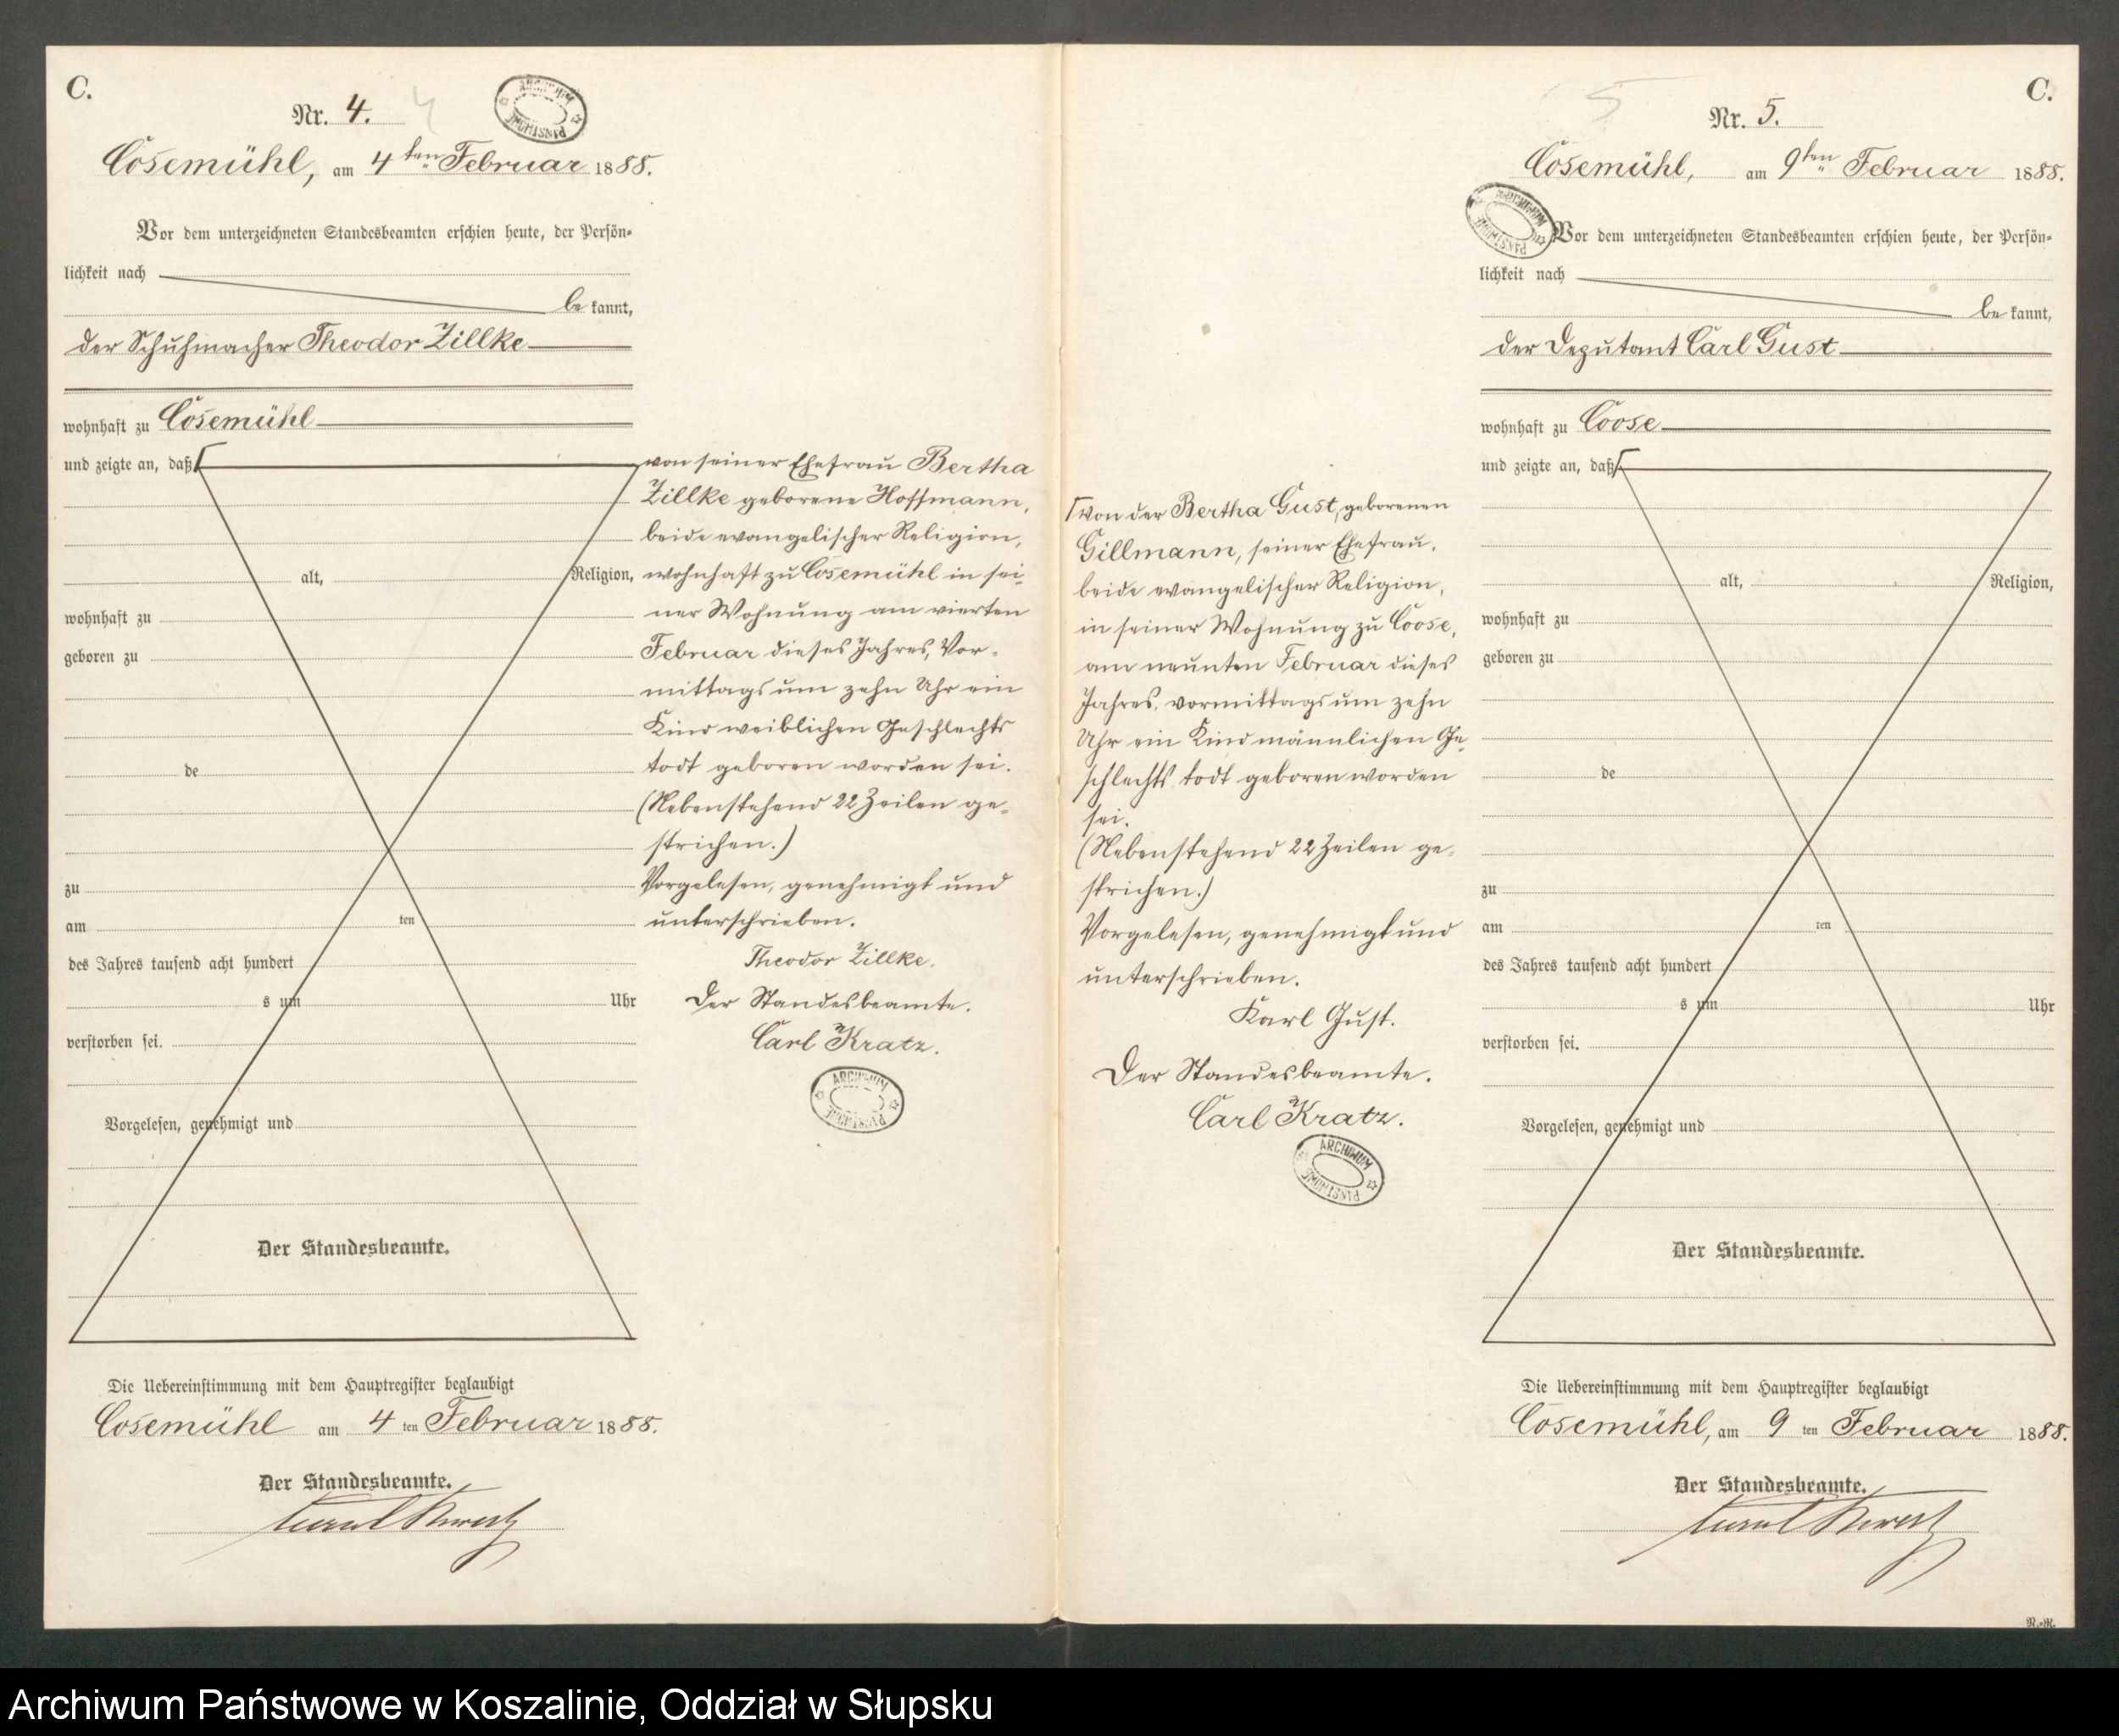 C.
Nr. 4.
4
ARCHIWUM
PAŃSTWOWE
Cosemühl, am 4ten Februar 1888.
Vor dem unterzeichneten Standesbeamten erschien heute, der Persön-
lichkeit nach
be kannt,
der Schuhmacher Theodor Zillke
wohnhaft zu Cosemühl
und zeigte an, daß
alt, Religion,
wohnhaft zu
geboren zu
de
zu
am ten
des Jahres tausend acht hundert
s um Uhr
verstorben sei.
Vorgelesen, genehmigt und
Der Standesbeamte.
von seiner Ehefrau Bertha
Zillke geborene Hoffmann,
beide evangelischer Religion,
wohnhaft zu Cosemühl in sei-
ner Wohnung am vierten
Februar dieses Jahres, Vor-
mittags um zehn Uhr ein
Kind weiblichen Geschlechts
todt geboren worden sei.
(Nebenstehend 22 Zeilen ge-
strichen.)
Vorgelesen, genehmigt und
unterschrieben.
Theodor Zillke.
Der Standesbeamte.
Carl Kratz.
ARCHIWUM
PAŃSTWOWE
Die Uebereinstimmung mit dem Hauptregister beglaubigt
Cosemühl am 4 ten Februar 1888.
Der Standesbeamte.
Carl Kratz
C.
5
Nr. 5.
Cosemühl, am 9ten Februar 1888.
ARCHIWUM
PAŃSTWOWE
Vor dem unterzeichneten Standesbeamten erschien heute, der Persön-
lichkeit nach
be kannt,
der Deputant Carl Gust
wohnhaft zu Coose
und zeigte an, daß
alt, Religion,
wohnhaft zu
geboren zu
de
zu
am ten
des Jahres tausend acht hundert
s um Uhr
verstorben sei.
Vorgelesen, genehmigt und
Der Standesbeamte.
von der Bertha Gust, geborenen
Gillmann, seiner Ehefrau,
beide evangelischer Religion,
in seiner Wohnung zu Coose,
am neunten Februar dieses
Jahres, vormittags um zehn
Uhr ein Kind männlichen Ge-
schlechts todt geboren worden
sei.
(Nebenstehend 22 Zeilen ge-
strichen.)
Vorgelesen, genehmigt und
unterschrieben.
Karl Gust.
Der Standesbeamte.
Carl Kratz.
ARCHIWUM
PAŃSTWOWE
Die Uebereinstimmung mit dem Hauptregister beglaubigt
Cosemühl, am 9 ten Februar 1888.
Der Standesbeamte.
Carl Kratz
R.-R.
Archiwum Państwowe w Koszalinie, Oddział w Słupsku